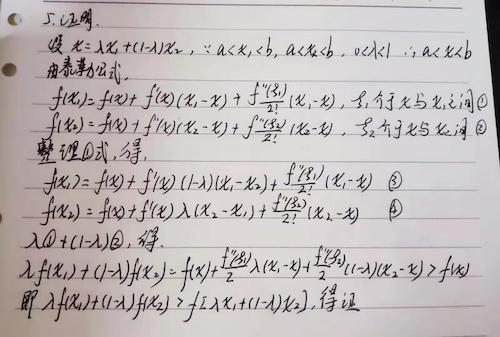 5.证明.
设 x=λx₁+(1-λ)x₂, ∵a<x₁<b, a<x₂<b, 0<λ<1 ∴a<x<b
由泰勒公式,
f(x₁)=f(x)+f'(x)(x₁-x)+f''(ξ₁)/2!(x₁-x), ξ₁介于x与x₁之间①
f(x₂)=f(x)+f'(x)(x₂-x)+f''(ξ₂)/2!(x₂-x), ξ₂介于x与x₂间②
整理①式,得,
f(x₁)=f(x)+f'(x)(1-λ)(x₁-x₂)+f''(ξ₁)/2!(x₁-x) ③
f(x₂)=f(x)+f'(x)λ(x₂-x₁)+f''(ξ₂)/2!(x₂-x) ④
λ①+(1-λ)②,得.
λf(x₁)+(1-λ)f(x₂)=f(x)+f''(ξ₁)/2 λ(x₁-x)+f''(ξ₂)/2 (1-λ)(x₂-x)>f(x)
即 λf(x₁)+(1-λ)f(x₂)>f[λx₁+(1-λ)x₂],得证